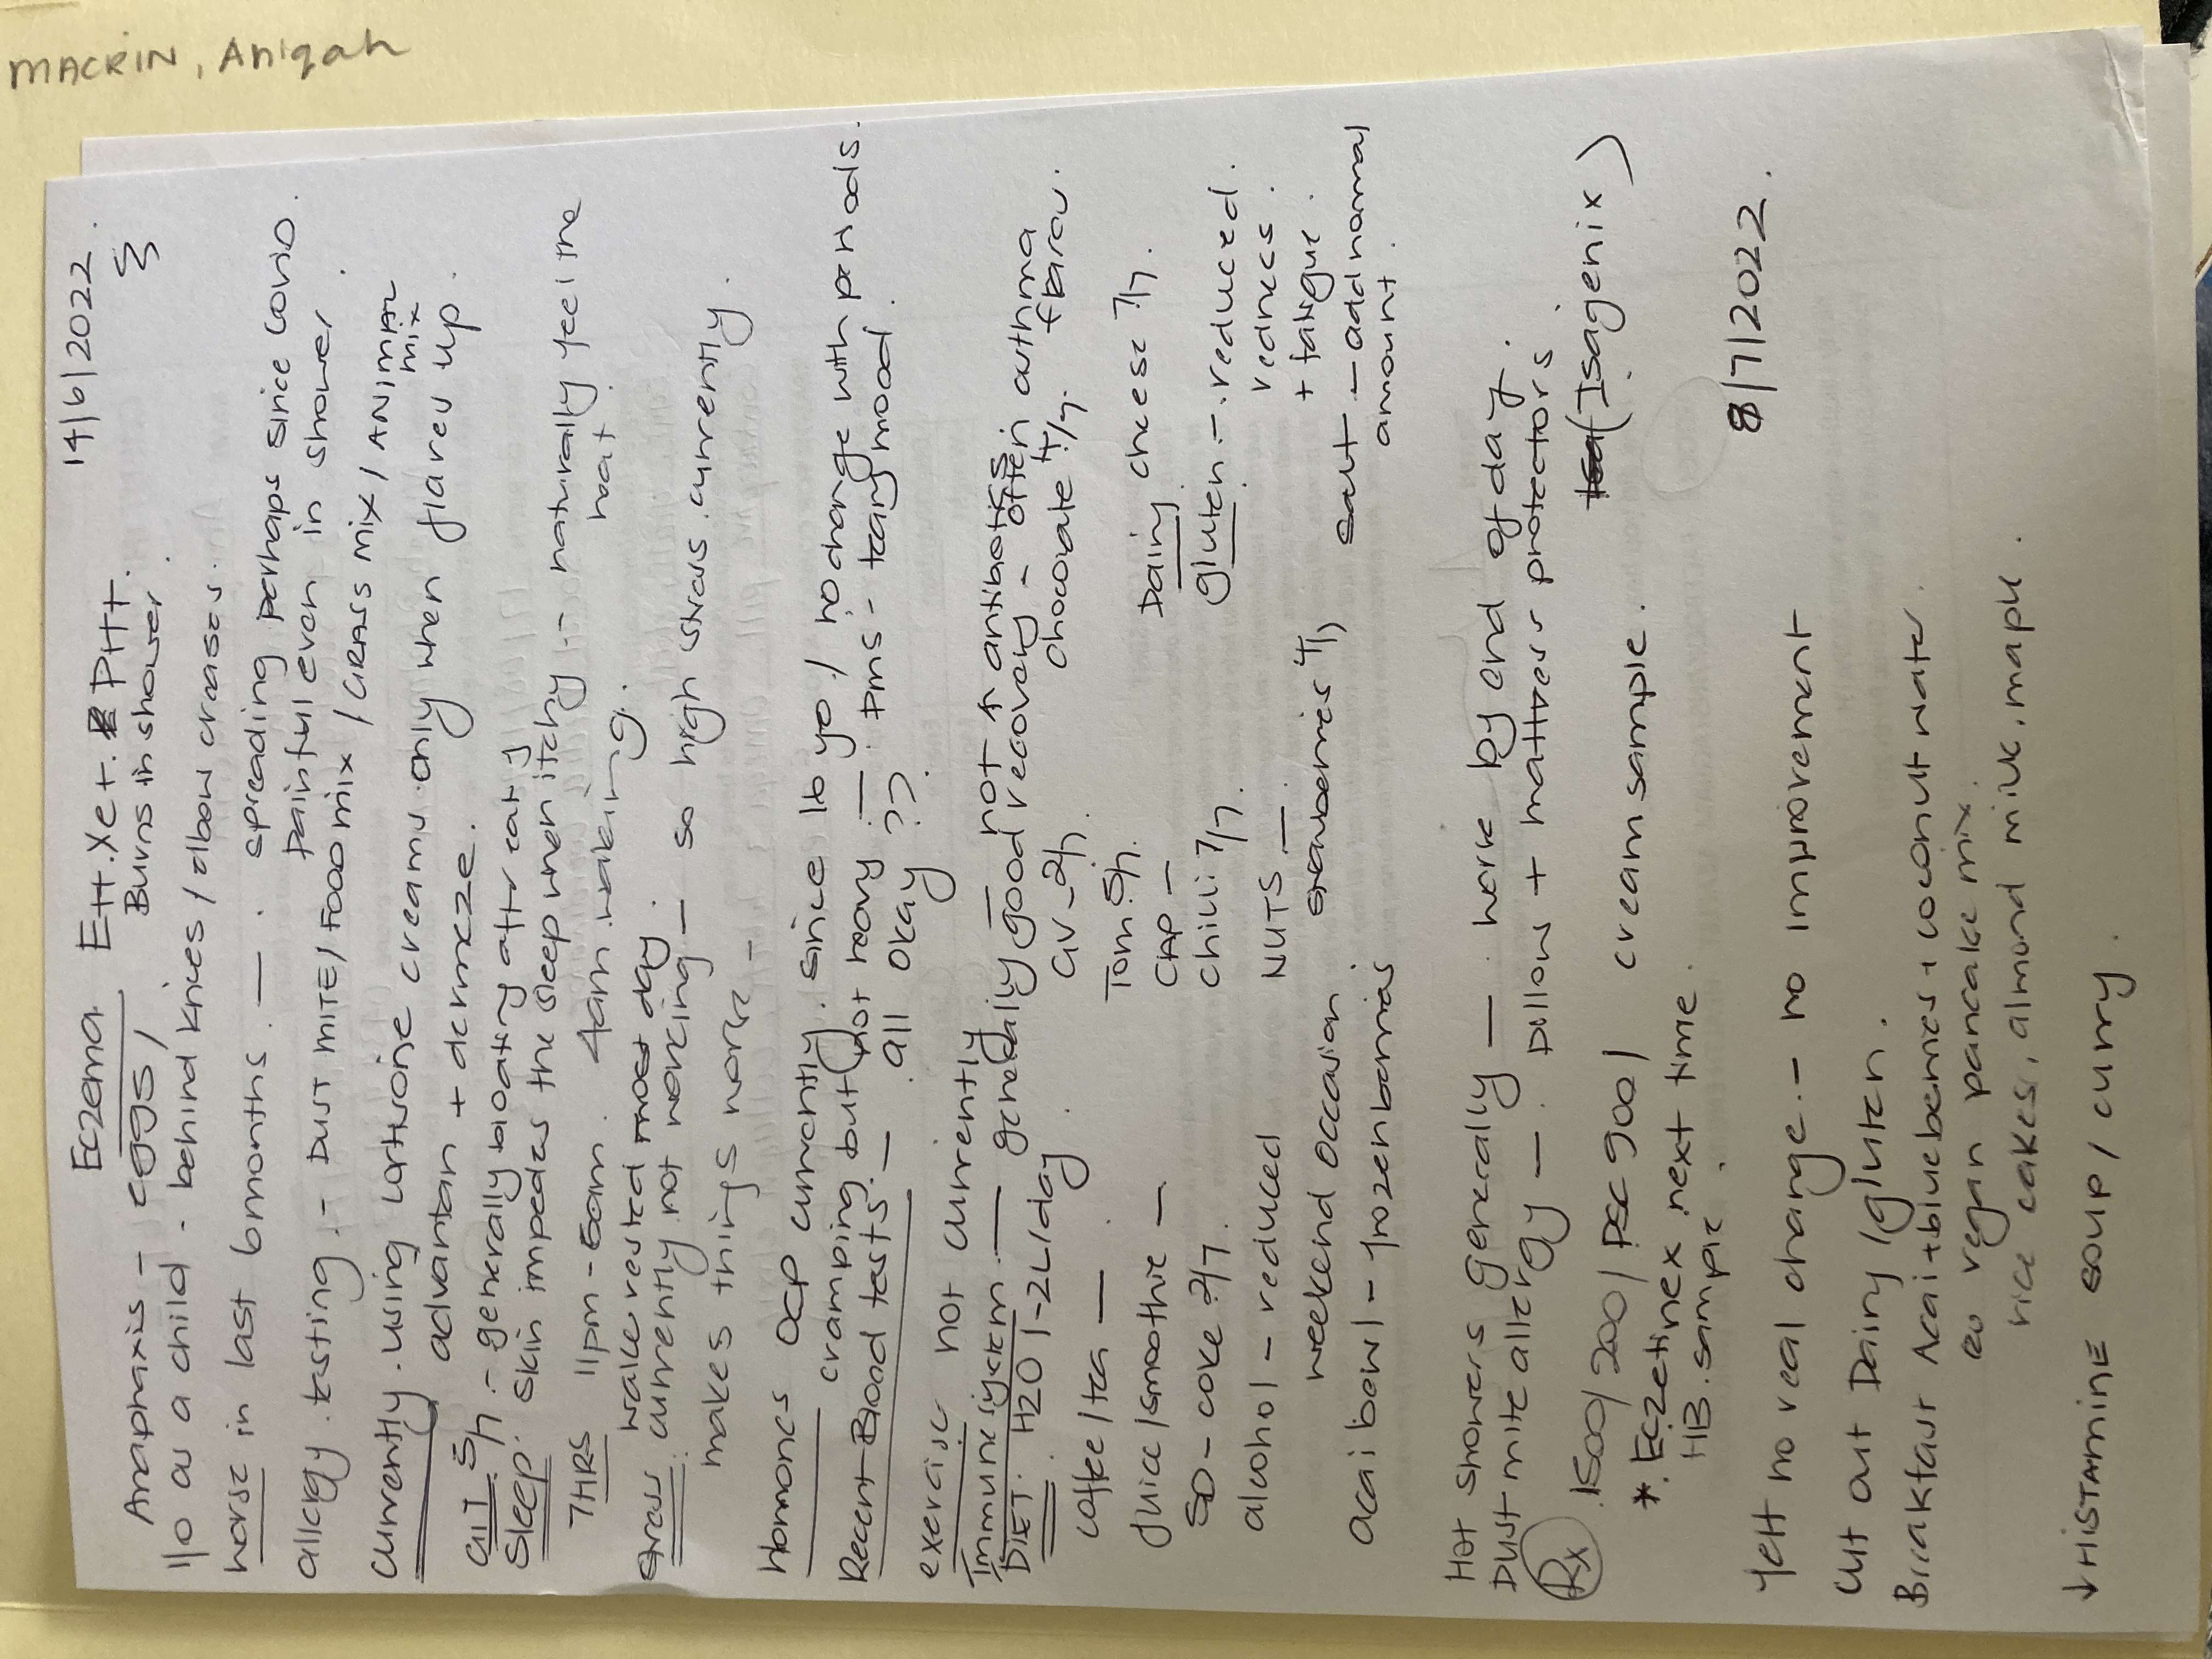 MACRIN, Aniqah
14/6/2022.
Eczema E++. Xe+. P++.
Anaphaxis - eggs / Burns in shower.
llo as a child - behind knees / elbow creases.
worse in last 6months. — . spreading perhaps since COVID.
painful even in shower.
allergy testing. - DUST MITE / FOOD mix / GRASS mix / ANIMAL mix
currently. using cortisone creams. only when flares up.
advantan + dermeze.
GIT. 5/7. - generally bloating after eating
Sleep. skin impedes the sleep when itchy. - naturally feel the heat.
7HRS 11pm - 6am. 4am waking.
wake rested most day.
Stress: currently not working — so high stress currently.
makes things worse -
Hormones OCP currently. since 16 yo / no change with periods.
cramping but not heavy. — pms - teary mood.
Recent Blood tests. — . all okay ??
exercise not currently
Immune system. — generally good recovery - often asthma flares.
not ↑ antibiotics
DIET. H2O 1-2L/day. GV - 2/7. chocolate 4/7.
coffee / tea — Tom. 5/7.
Juice / smoothie — CAP — Dairy cheese 7/7.
SD - coke 2/7. chilli 7/7. gluten - reduced.
alcohol - reduced NUTS. — redness.
weekend occasion strawberries 4/7 + fatigue.
acai bowl - frozen berries salt - add normal amount.
Hot showers generally — . worse by end of day.
Dust mite allergy — . pillow + mattress protectors
Rx 1500 / 200 / PSC 900 / cream sample. (Isagenix)
* Eczetinex next time.
HB. sample.
8/7/2022.
felt no real change. - no improvement
cut out Dairy / gluten.
Breakfast Acai + blueberries + coconut water.
vegan pancake mix.
rice cakes, almond milk, maple.
↓ HISTAMINE soup / curry.